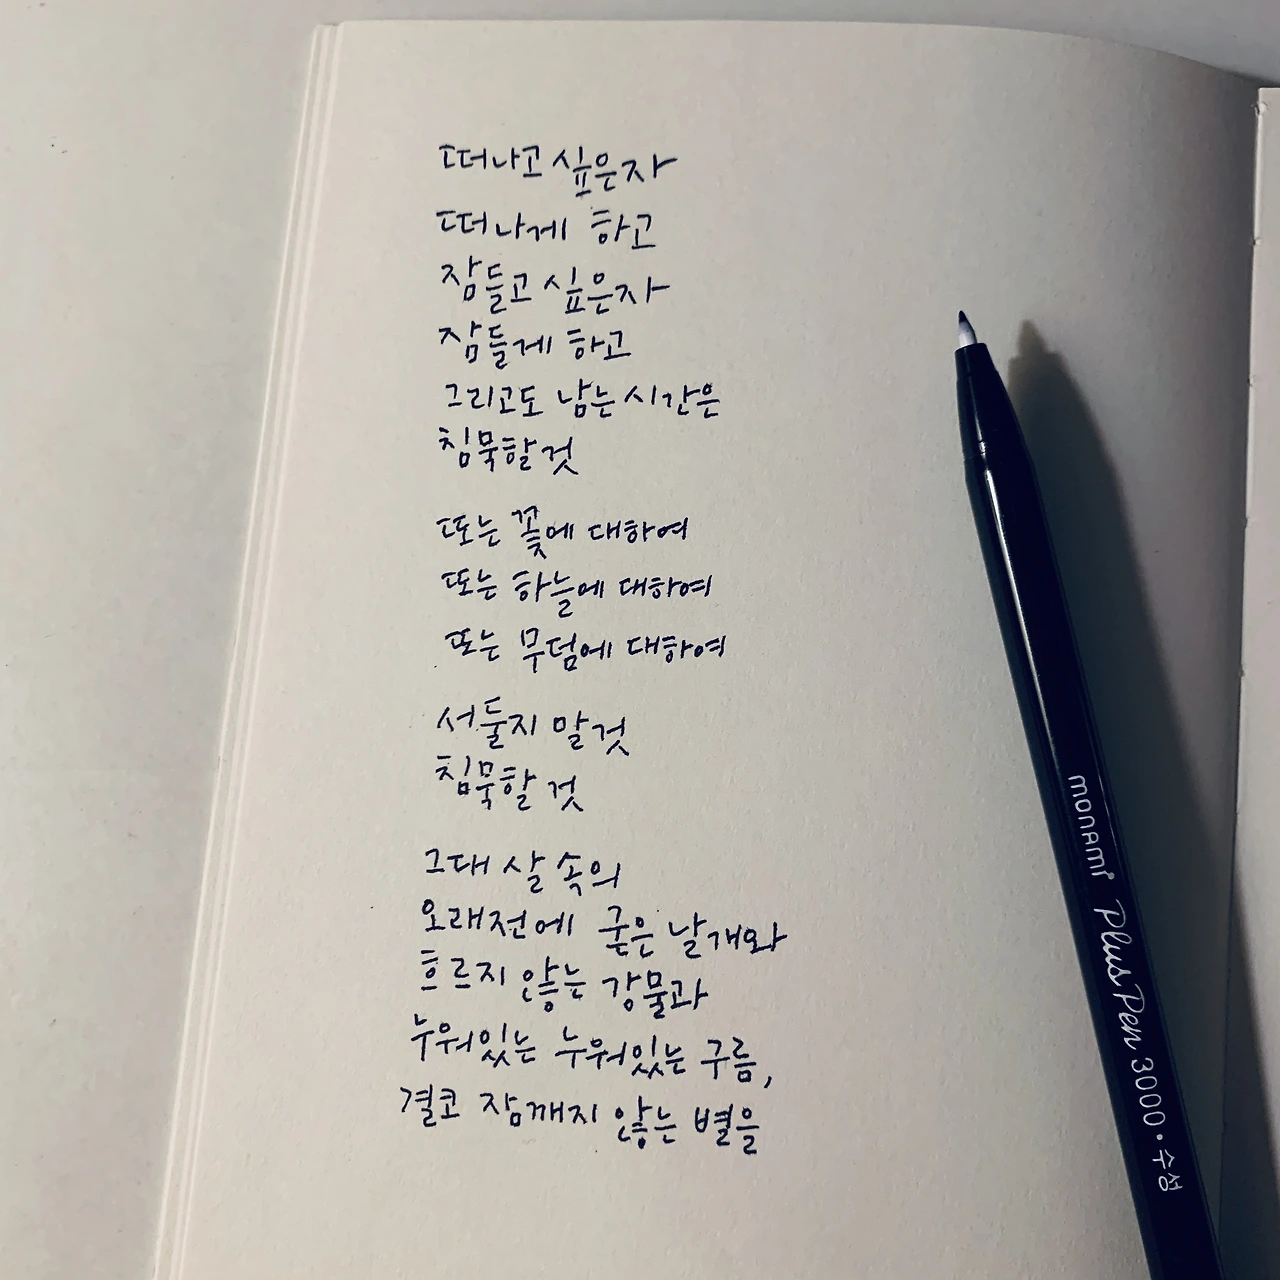 떠나고 싶은자
떠나게 하고
잠들고 싶은자
잠들게 하고
그리고도 남는 시간은
침묵할것
또는 꽃에 대하여
또는 하늘에 대하여
또는 무덤에 대하여
서둘지 말것
침묵할 것
그대 살 속의
오래전에 굳은 날개와
흐르지 않는 강물과
누워있는 누워있는 구름,
결코 잠깨지 않는 별을
monami Plus Pen 3000 • 수성